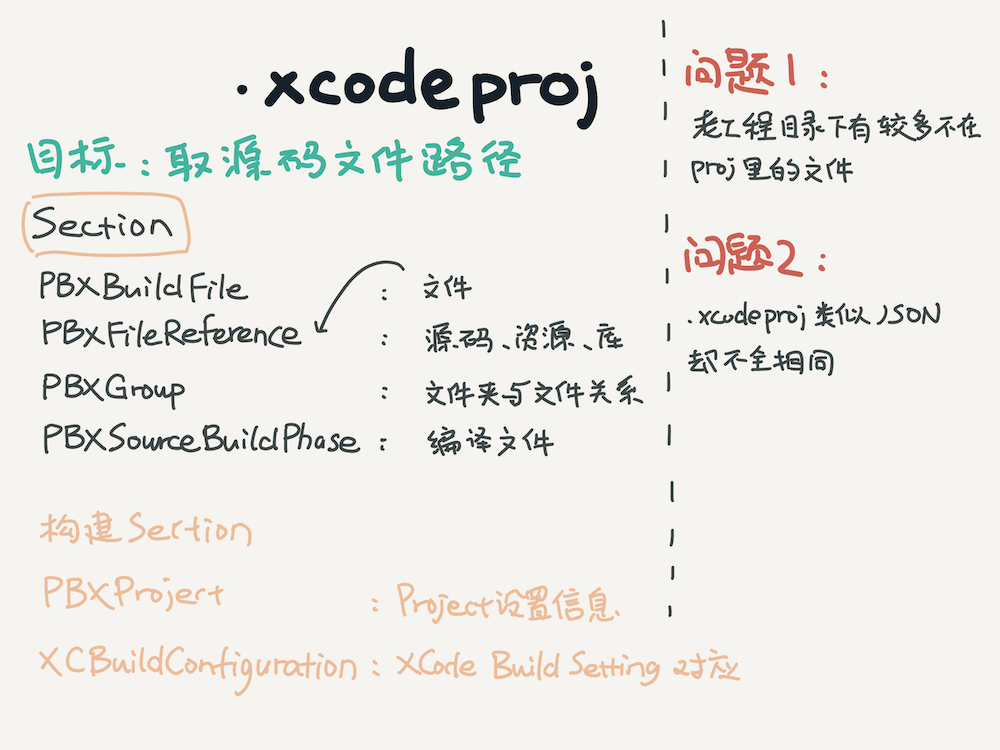 .xcodeproj
目标：取源码文件路径
Section
PBXBuildFile : 文件
PBXFileReference : 源码、资源、库
PBXGroup : 文件夹与文件关系
PBXSourceBuildPhase : 编译文件
构建Section
PBXProject : Project设置信息
XCBuildConfiguration : XCode Build Setting 对应
问题1：
老工程目录下有较多不在
proj里的文件
问题2：
.xcodeproj类似JSON
却不全相同